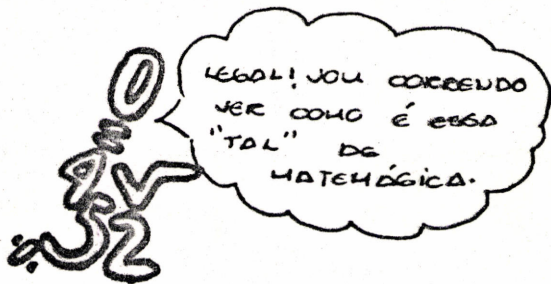 LEGAL! VOU CORRENDO
VER COMO É ESSA
"TAL" DE
MATEMÁGICA.